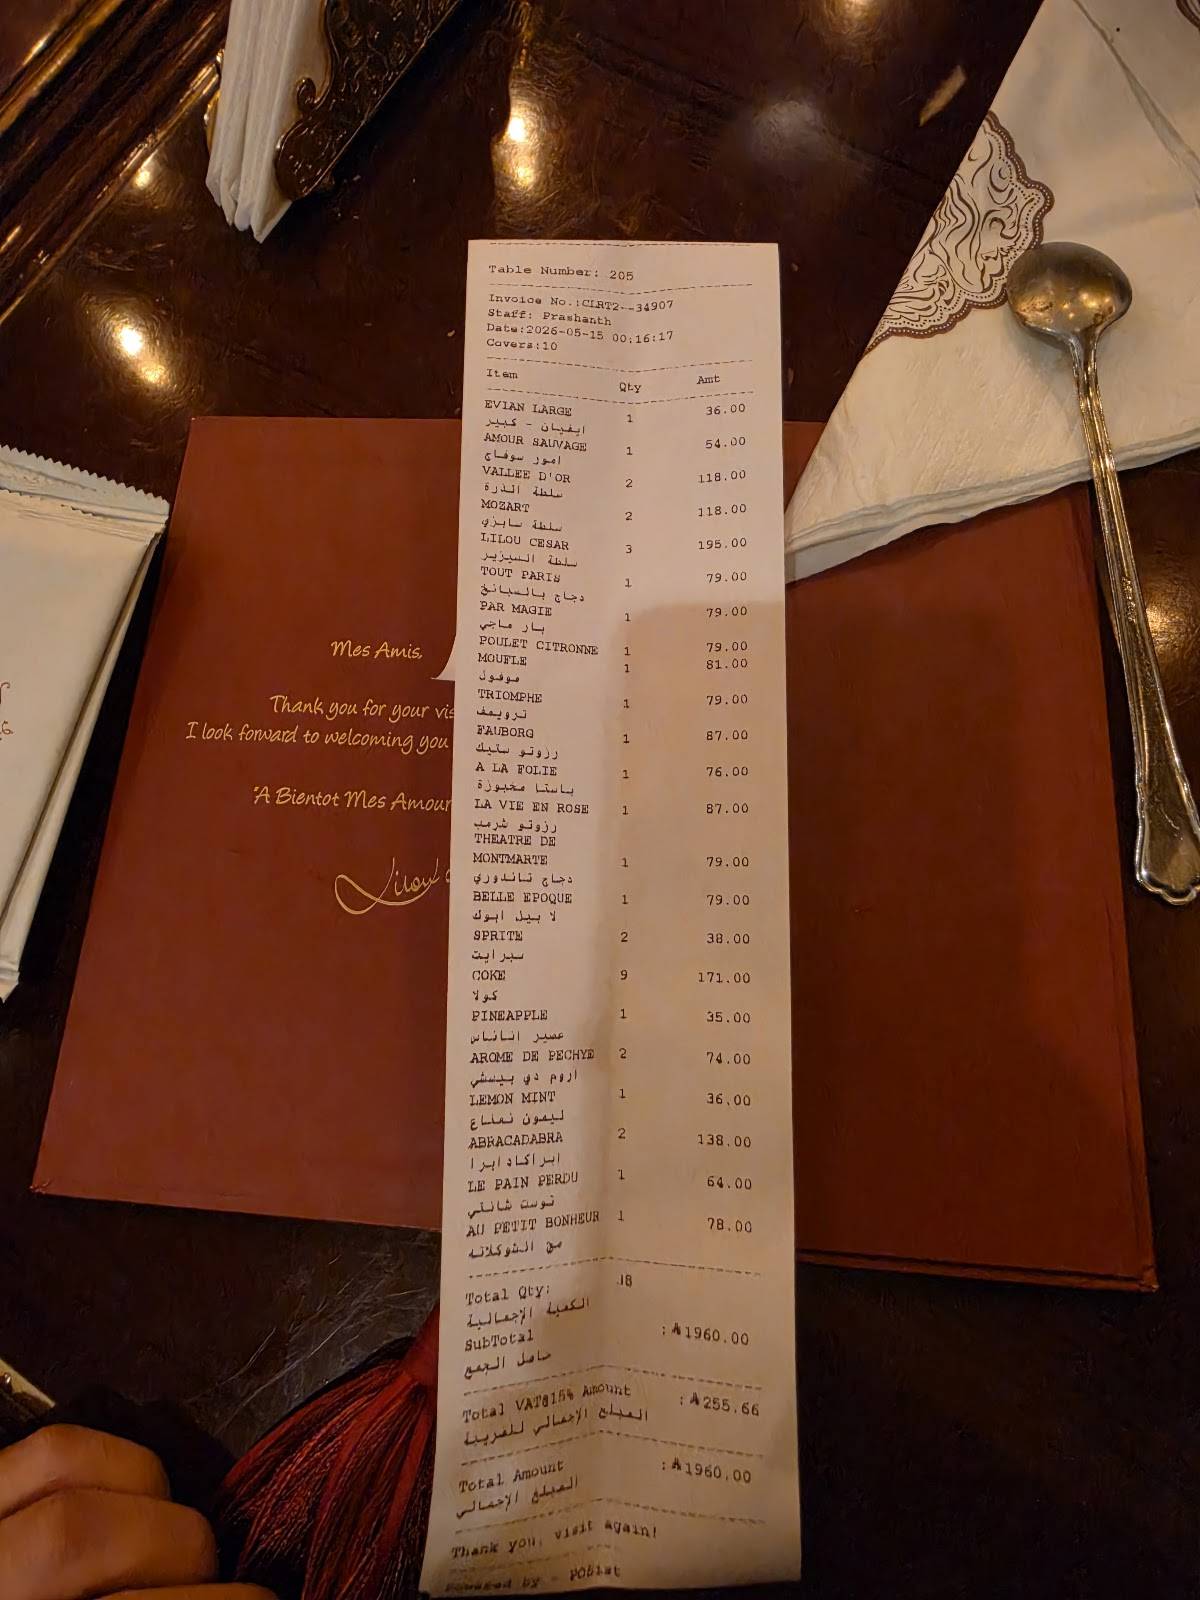 Table Number: 205
Invoice No.:CLRT2--34907
Staff: Prashanth
Date:2026-05-15 00:16:17
Covers:10
Item Qty Amt
EVIAN LARGE 1 36.00
ايفيان - كبير
AMOUR SAUVAGE 1 54.00
امور سوفاج
VALLEE D'OR 2 118.00
سلطة الذرة
MOZART 2 118.00
سلطة سابزي
LILOU CESAR 3 195.00
سلطة السيزير
TOUT PARIS 1 79.00
دجاج بالسبانخ
PAR MAGIE 1 79.00
بار ماجي
POULET CITRONNE 1 79.00
MOUFLE 1 81.00
موفول
TRIOMPHE 1 79.00
ترويمف
FAUBORG 1 87.00
رزوتو ستيك
A LA FOLIE 1 76.00
باستا مخبوزة
LA VIE EN ROSE 1 87.00
رزوتو شرمب
THEATRE DE
MONTMARTE 1 79.00
دجاج تاندوري
BELLE EPOQUE 1 79.00
لا بيل ابوك
SPRITE 2 38.00
سبرايت
COKE 9 171.00
كولا
PINEAPPLE 1 35.00
عصير اناناس
AROME DE PECHYE 2 74.00
اروم دي بيسشي
LEMON MINT 1 36.00
ليمون نعناع
ABRACADABRA 2 138.00
ابراكادابرا
LE PAIN PERDU 1 64.00
توست شانتي
AU PETIT BONHEUR 1 78.00
مع الشوكلاته
Total Qty: 38
الكمية الإجمالية
SubTotal :⃁1960.00
حاصل الجمع
Total VAT@15% Amount :⃁255.66
المبلغ الإجمالي للضريبة
Total Amount :⃁1960.00
المبلغ الإجمالي
Thank you, visit again!
Powered by - POSist
Mes Amis,
Thank you for your vis
I look forward to welcoming you
"A Bientot Mes Amour
Lilou